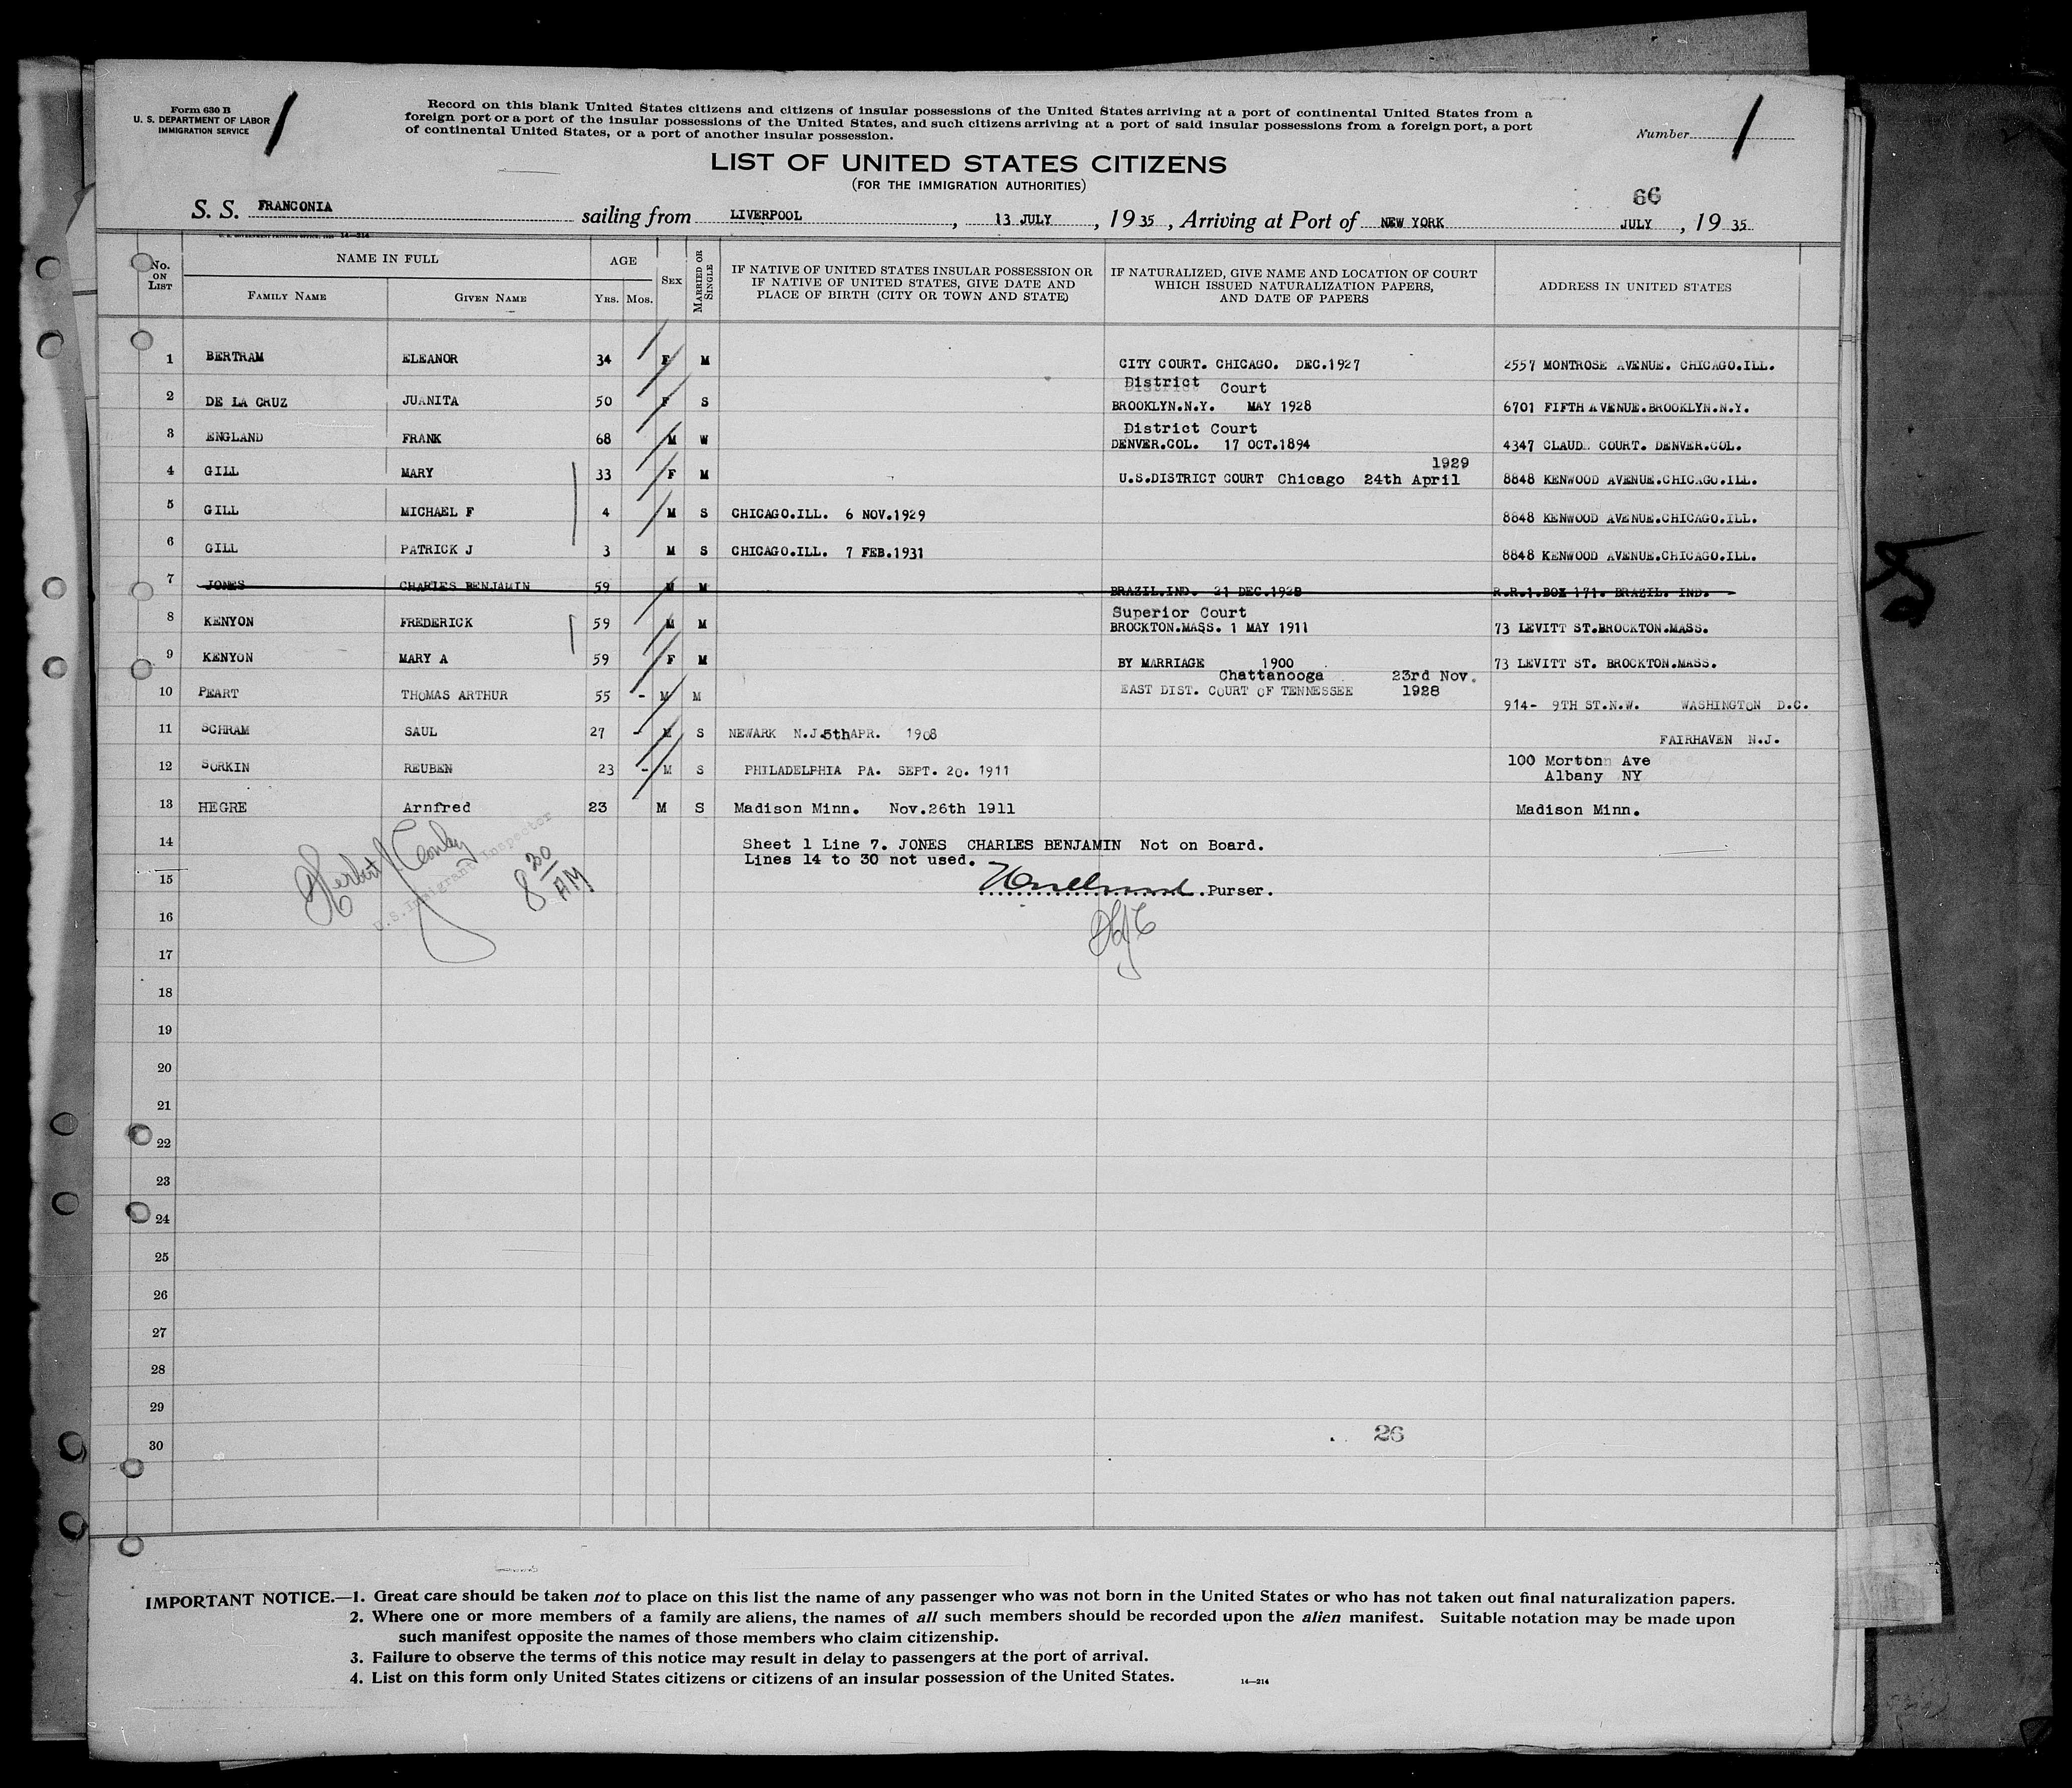 Form 630 B
U. S. DEPARTMENT OF LABOR
IMMIGRATION SERVICE
1
Record on this blank United States citizens and citizens of insular possessions of the United States arriving at a port of continental United States from a
foreign port or a port of the insular possessions of the United States, and such citizens arriving at a port of said insular possessions from a foreign port, a port
of continental United States, or a port of another insular possession.
Number 1
LIST OF UNITED STATES CITIZENS
(FOR THE IMMIGRATION AUTHORITIES)
66
S. S. FRANCONIA sailing from LIVERPOOL, 13 JULY, 1935, Arriving at Port of NEW YORK JULY, 1935
No. ON LIST NAME IN FULL FAMILY NAME GIVEN NAME AGE YRS. MOS. SEX MARRIED OR SINGLE
IF NATIVE OF UNITED STATES INSULAR POSSESSION OR
IF NATIVE OF UNITED STATES, GIVE DATE AND
PLACE OF BIRTH (CITY OR TOWN AND STATE)
IF NATURALIZED, GIVE NAME AND LOCATION OF COURT
WHICH ISSUED NATURALIZATION PAPERS,
AND DATE OF PAPERS
ADDRESS IN UNITED STATES
1 BERTRAM ELEANOR 34 F M CITY COURT. CHICAGO. DEC.1927 2557 MONTROSE AVENUE. CHICAGO.ILL.
District Court
2 DE LA CRUZ JUANITA 50 F S BROOKLYN.N.Y. MAY 1928 6701 FIFTH AVENUE.BROOKLYN.N.Y.
District Court
3 ENGLAND FRANK 68 M W DENVER.COL. 17 OCT.1894 4347 CLAUDE COURT. DENVER.COL.
1929
4 GILL MARY 33 F M U.S.DISTRICT COURT Chicago 24th April 8848 KENWOOD AVENUE.CHICAGO.ILL.
5 GILL MICHAEL F 4 M S CHICAGO.ILL. 6 NOV.1929 8848 KENWOOD AVENUE.CHICAGO.ILL.
6 GILL PATRICK J 3 M S CHICAGO.ILL. 7 FEB.1931 8848 KENWOOD AVENUE.CHICAGO.ILL.
7 JONES CHARLES BENJAMIN 59 M M BRAZIL.IND. 21 DEC.1928 R.R.1.BOX 171. BRAZIL. IND.
Superior Court
8 KENYON FREDERICK 59 M M BROCKTON.MASS. 1 MAY 1911 73 LEVITT ST.BROCKTON.MASS.
9 KENYON MARY A 59 F M BY MARRIAGE 1900 73 LEVITT ST. BROCKTON.MASS.
Chattanooga 23rd Nov.
10 PEART THOMAS ARTHUR 55 - M M EAST DIST. COURT OF TENNESSEE 1928 914- 9TH ST.N.W. WASHINGTON D.C.
11 SCHRAM SAUL 27 - M S NEWARK N.J.5thAPR. 1908 FAIRHAVEN N.J.
12 SORKIN REUBEN 23 - M S PHILADELPHIA PA. SEPT. 20. 1911 100 Morton Ave
Albany NY
13 HEGRE Arnfred 23 M S Madison Minn. Nov.26th 1911 Madison Minn.
14 Sheet 1 Line 7. JONES CHARLES BENJAMIN Not on Board.
Lines 14 to 30 not used.
U.S. Immigrant Inspector
8 30 AM
15 Purser.
16
17
18
19
20
21
22
23
24
25
26
27
28
29
26
30
IMPORTANT NOTICE.—1. Great care should be taken not to place on this list the name of any passenger who was not born in the United States or who has not taken out final naturalization papers.
2. Where one or more members of a family are aliens, the names of all such members should be recorded upon the alien manifest. Suitable notation may be made upon
such manifest opposite the names of those members who claim citizenship.
3. Failure to observe the terms of this notice may result in delay to passengers at the port of arrival.
4. List on this form only United States citizens or citizens of an insular possession of the United States.
14—214